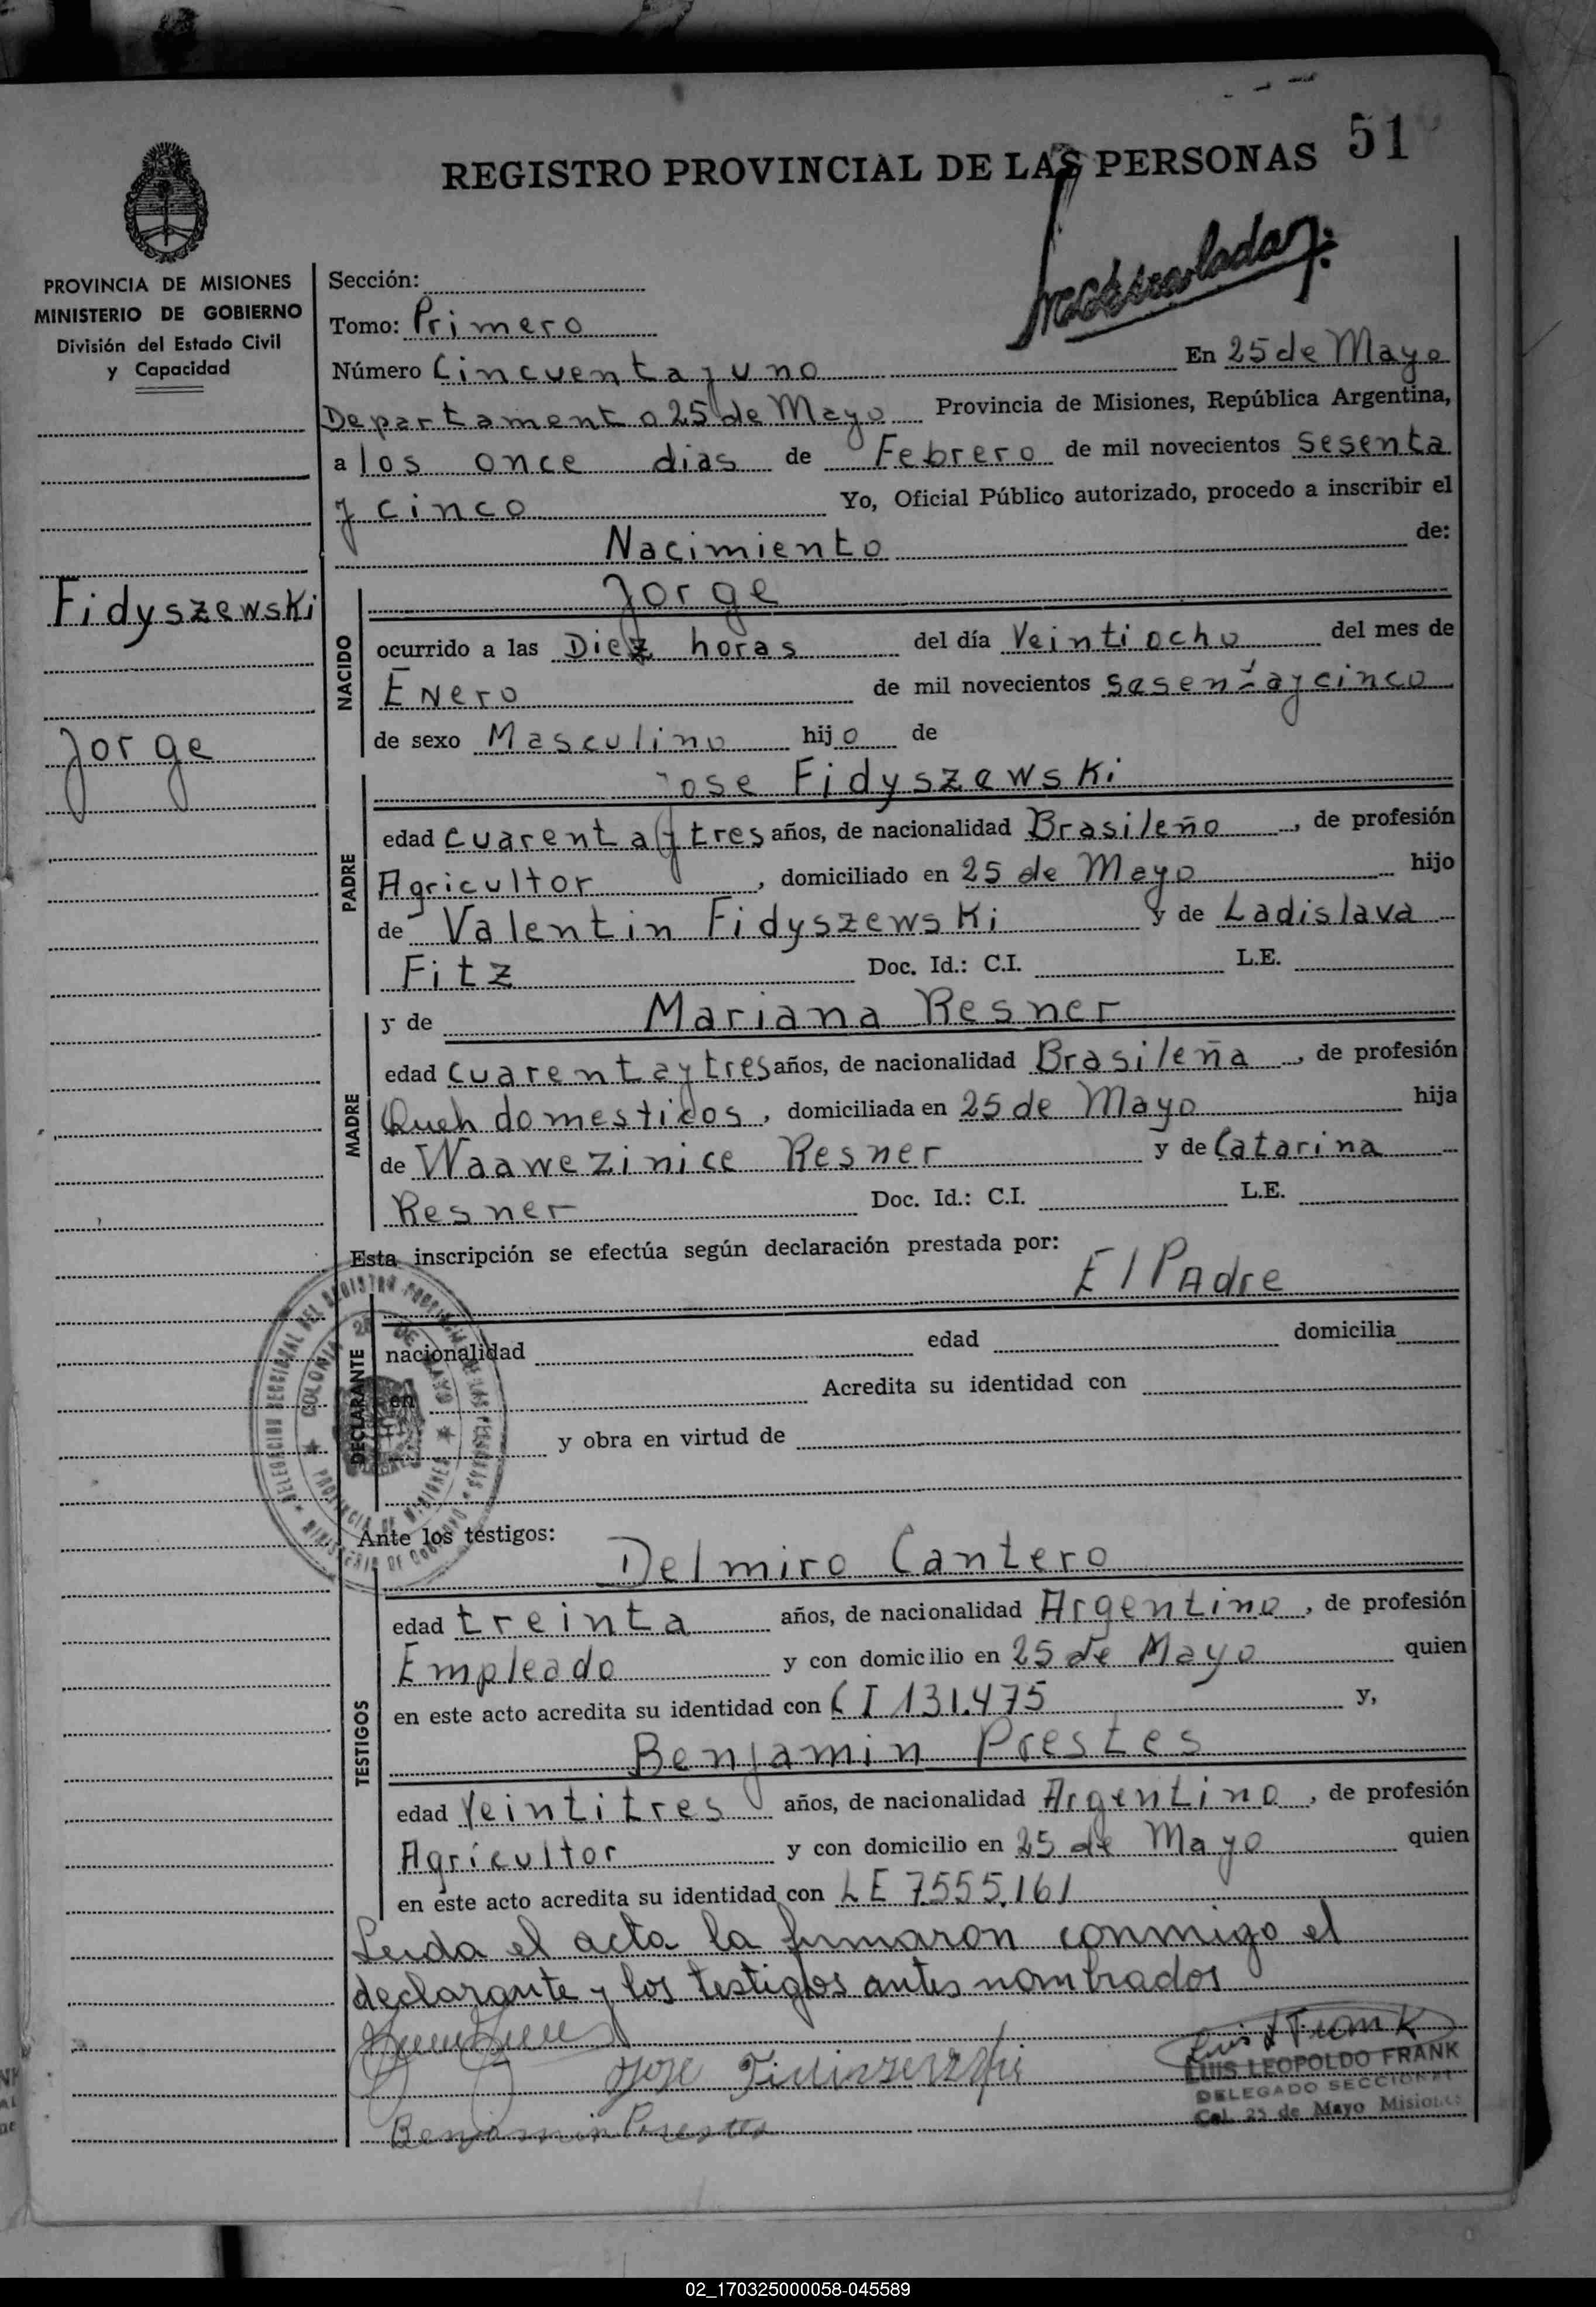 51
REGISTRO PROVINCIAL DE LAS PERSONAS
PROVINCIA DE MISIONES
MINISTERIO DE GOBIERNO
División del Estado Civil
y Capacidad
Fidyszewski
Jorge
Sección:
Tomo: Primero
Número Cincuenta y uno En 25 de Mayo
Departamento 25 de Mayo Provincia de Misiones, República Argentina,
a los once dias de Febrero de mil novecientos sesenta
y cinco Yo, Oficial Público autorizado, procedo a inscribir el
Nacimiento de:
NACIDO
Jorge
ocurrido a las Diez horas del día Veintiocho del mes de
Enero de mil novecientos sesentaycinco
de sexo Masculino hijo de
PADRE
Jose Fidyszewski
edad cuarenta y tres años, de nacionalidad Brasileño, de profesión
Agricultor, domiciliado en 25 de Mayo hijo
de Valentin Fidyszewski y de Ladislava
Fitz Doc. Id.: C.I. L.E.
MADRE
y de Mariana Resner
edad cuarentaytres años, de nacionalidad Brasileña, de profesión
Queh domesticos, domiciliada en 25 de Mayo hija
de Waawezinice Resner y de Catarina
Resner Doc. Id.: C.I. L.E.
Esta inscripción se efectúa según declaración prestada por:
El PAdre
DECLARANTE
nacionalidad edad domicilia
en Acredita su identidad con
y obra en virtud de
DELEGACION SECCIONAL DEL REGISTRO PROVINCIAL DE LAS PERSONAS
COLONIA 25 DE MAYO
PROVINCIA DE MISIONES
MINISTERIO DE GOBIERNO
Ante los testigos:
TESTIGOS
Delmiro Cantero
edad treinta años, de nacionalidad Argentino, de profesión
Empleado y con domicilio en 25 de Mayo quien
en este acto acredita su identidad con CI 131.475 y,
Benjamin Prestes
edad Veintitres años, de nacionalidad Argentino, de profesión
Agricultor y con domicilio en 25 de Mayo quien
en este acto acredita su identidad con LE 7.555.161
Leida el acta la firmaron conmigo el
declarante y los testigos antes nombrados
Jose
Luis L Frank
LUIS LEOPOLDO FRANK
DELEGADO SECCIONAL
Col. 25 de Mayo Misiones
Benjamin Prestes
02_170325000058-045589